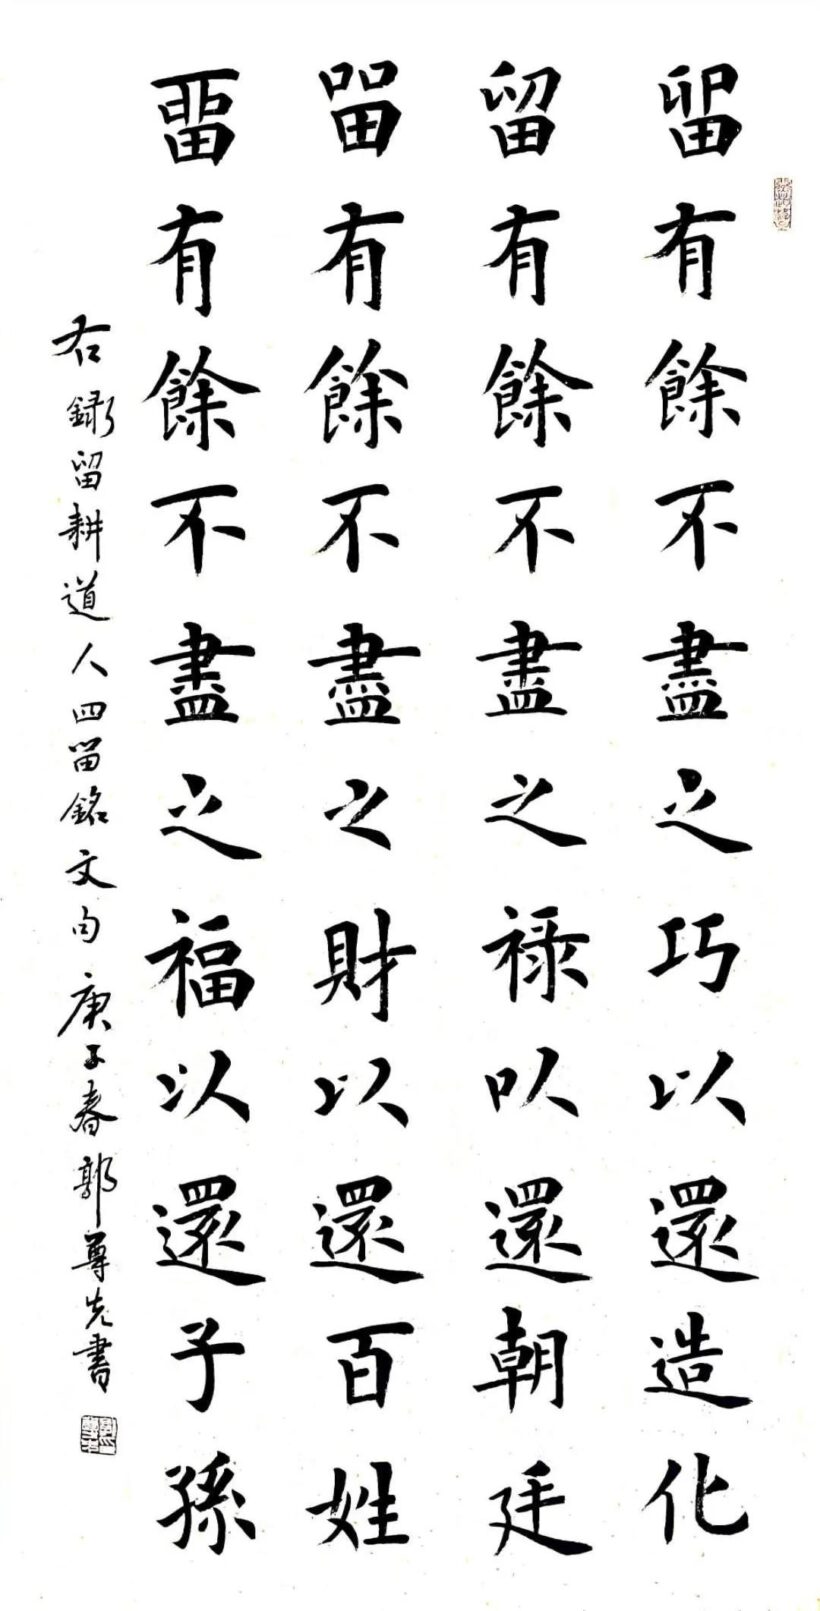 留有餘不盡之巧以還造化
留有餘不盡之祿以還朝廷
留有餘不盡之財以還百姓
留有餘不盡之福以還子孫
右錄留耕道人四留銘文句庚子春郭尊先書